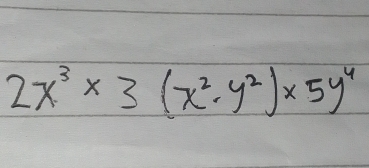 2x³ × 3 (x².y²) × 5y⁴